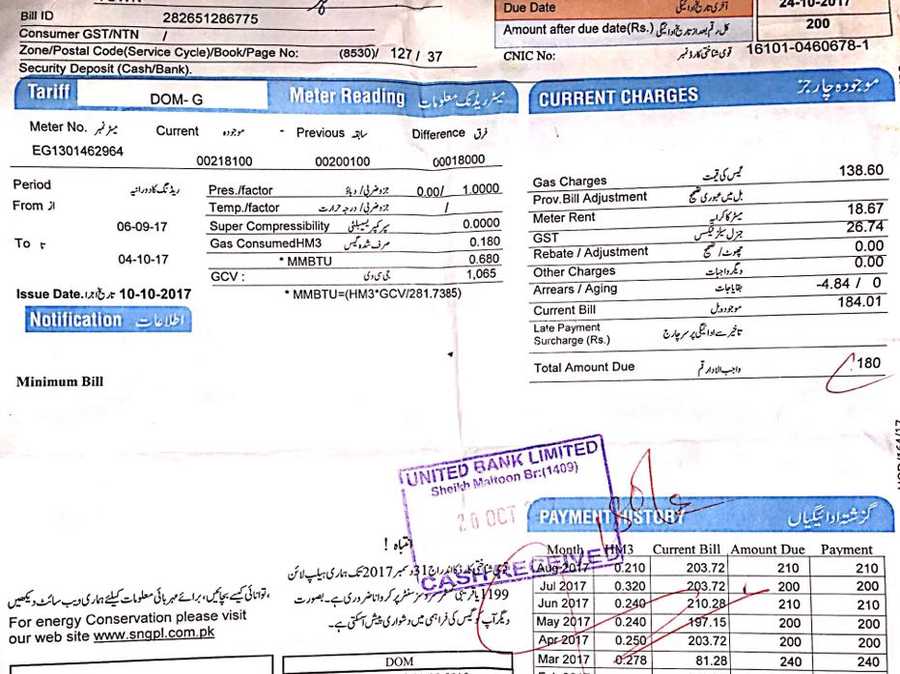 Bill ID 282651286775
Consumer GST/NTN /
Zone/Postal Code(Service Cycle)/Book/Page No: (8530)/ 127 / 37
Security Deposit (Cash/Bank).
Due Date آخری تاریخ ادائیگی 24-10-2017
Amount after due date(Rs.) کل رقم بعد از تاریخ ادائیگی 200
CNIC No: قومی شناختی کارڈ نمبر 16101-0460678-1
Tariff DOM- G Meter Reading میٹر ریڈنگ معلومات
Meter No. میٹر نمبر Current موجودہ - Previous سابقہ Difference فرق
EG1301462964
00218100 00200100 00018000
Period ریڈنگ کا دورانیہ
From از
06-09-17
To تا
04-10-17
Issue Date. تاریخ اجراء 10-10-2017
Pres./factor جز و ضربی / دباؤ 0.00/ 1.0000
Temp./factor جز و ضربی / درجہ حرارت /
Super Compressibility سپر کمپریسیبلیٹی 0.0000
Gas ConsumedHM3 صرف شدہ گیس 0.180
* MMBTU 0.680
GCV : جی سی وی 1,065
* MMBTU=(HM3*GCV/281.7385)
Notification اطلاعات
Minimum Bill
CURRENT CHARGES موجودہ چارجز
Gas Charges گیس کی قیمت 138.60
Prov.Bill Adjustment بل میں عبوری تصحیح
Meter Rent میٹر کا کرایہ 18.67
GST جنرل سیلز ٹیکس 26.74
Rebate / Adjustment چھوٹ / تصحیح 0.00
Other Charges دیگر واجبات 0.00
Arrears / Aging بقایا جات -4.84 / 0
Current Bill موجودہ بل 184.01
Late Payment
Surcharge (Rs.) تاخیر سے ادائیگی پر سرچارج
Total Amount Due واجب الادا رقم 180
UNITED BANK LIMITED
Sheikh Maltoon Br:(1409)
20 OCT
CASH RECEIVED
انتباہ !
قومی شناختی کارڈ کا اندراج 31 دسمبر 2017 تک ہماری ہیلپ لائن
1199 یا قریبی کسٹمر سروسز سنٹر پر کروانا ضروری ہے۔ بصورت
دیگر آپ کو گیس کی فراہمی میں دشواری پیش آسکتی ہے۔
توانائی کیسے بچائیں، برائے مہربانی معلومات کیلئے ہماری ویب سائٹ دیکھیں،
For energy Conservation please visit
our web site www.sngpl.com.pk
DOM
PAYMENT HISTORY گزشتہ ادائیگیاں
Month HM3 Current Bill Amount Due Payment
Aug 2017 0.210 203.72 210 210
Jul 2017 0.320 203.72 200 200
Jun 2017 0.240 210.28 210 210
May 2017 0.240 197.15 200 200
Apr 2017 0.250 203.72 200 200
Mar 2017 0.278 81.28 240 240